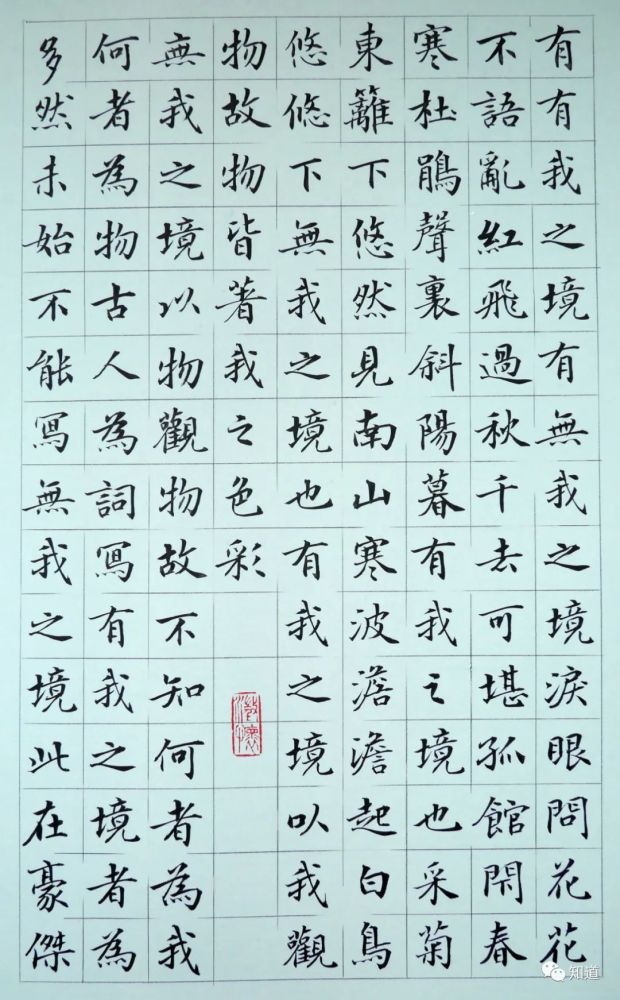 有有我之境有無我之境淚眼問花花
不語亂紅飛過秋千去可堪孤館閉春
寒杜鵑聲裏斜陽暮有我之境也采菊
東籬下悠然見南山寒波澹澹起白鳥
悠悠下無我之境也有我之境以我觀
物故物皆著我之色彩
無我之境以物觀物故不知何者為我
何者為物古人為詞寫有我之境者為
多然未始不能寫無我之境此在豪傑
知道